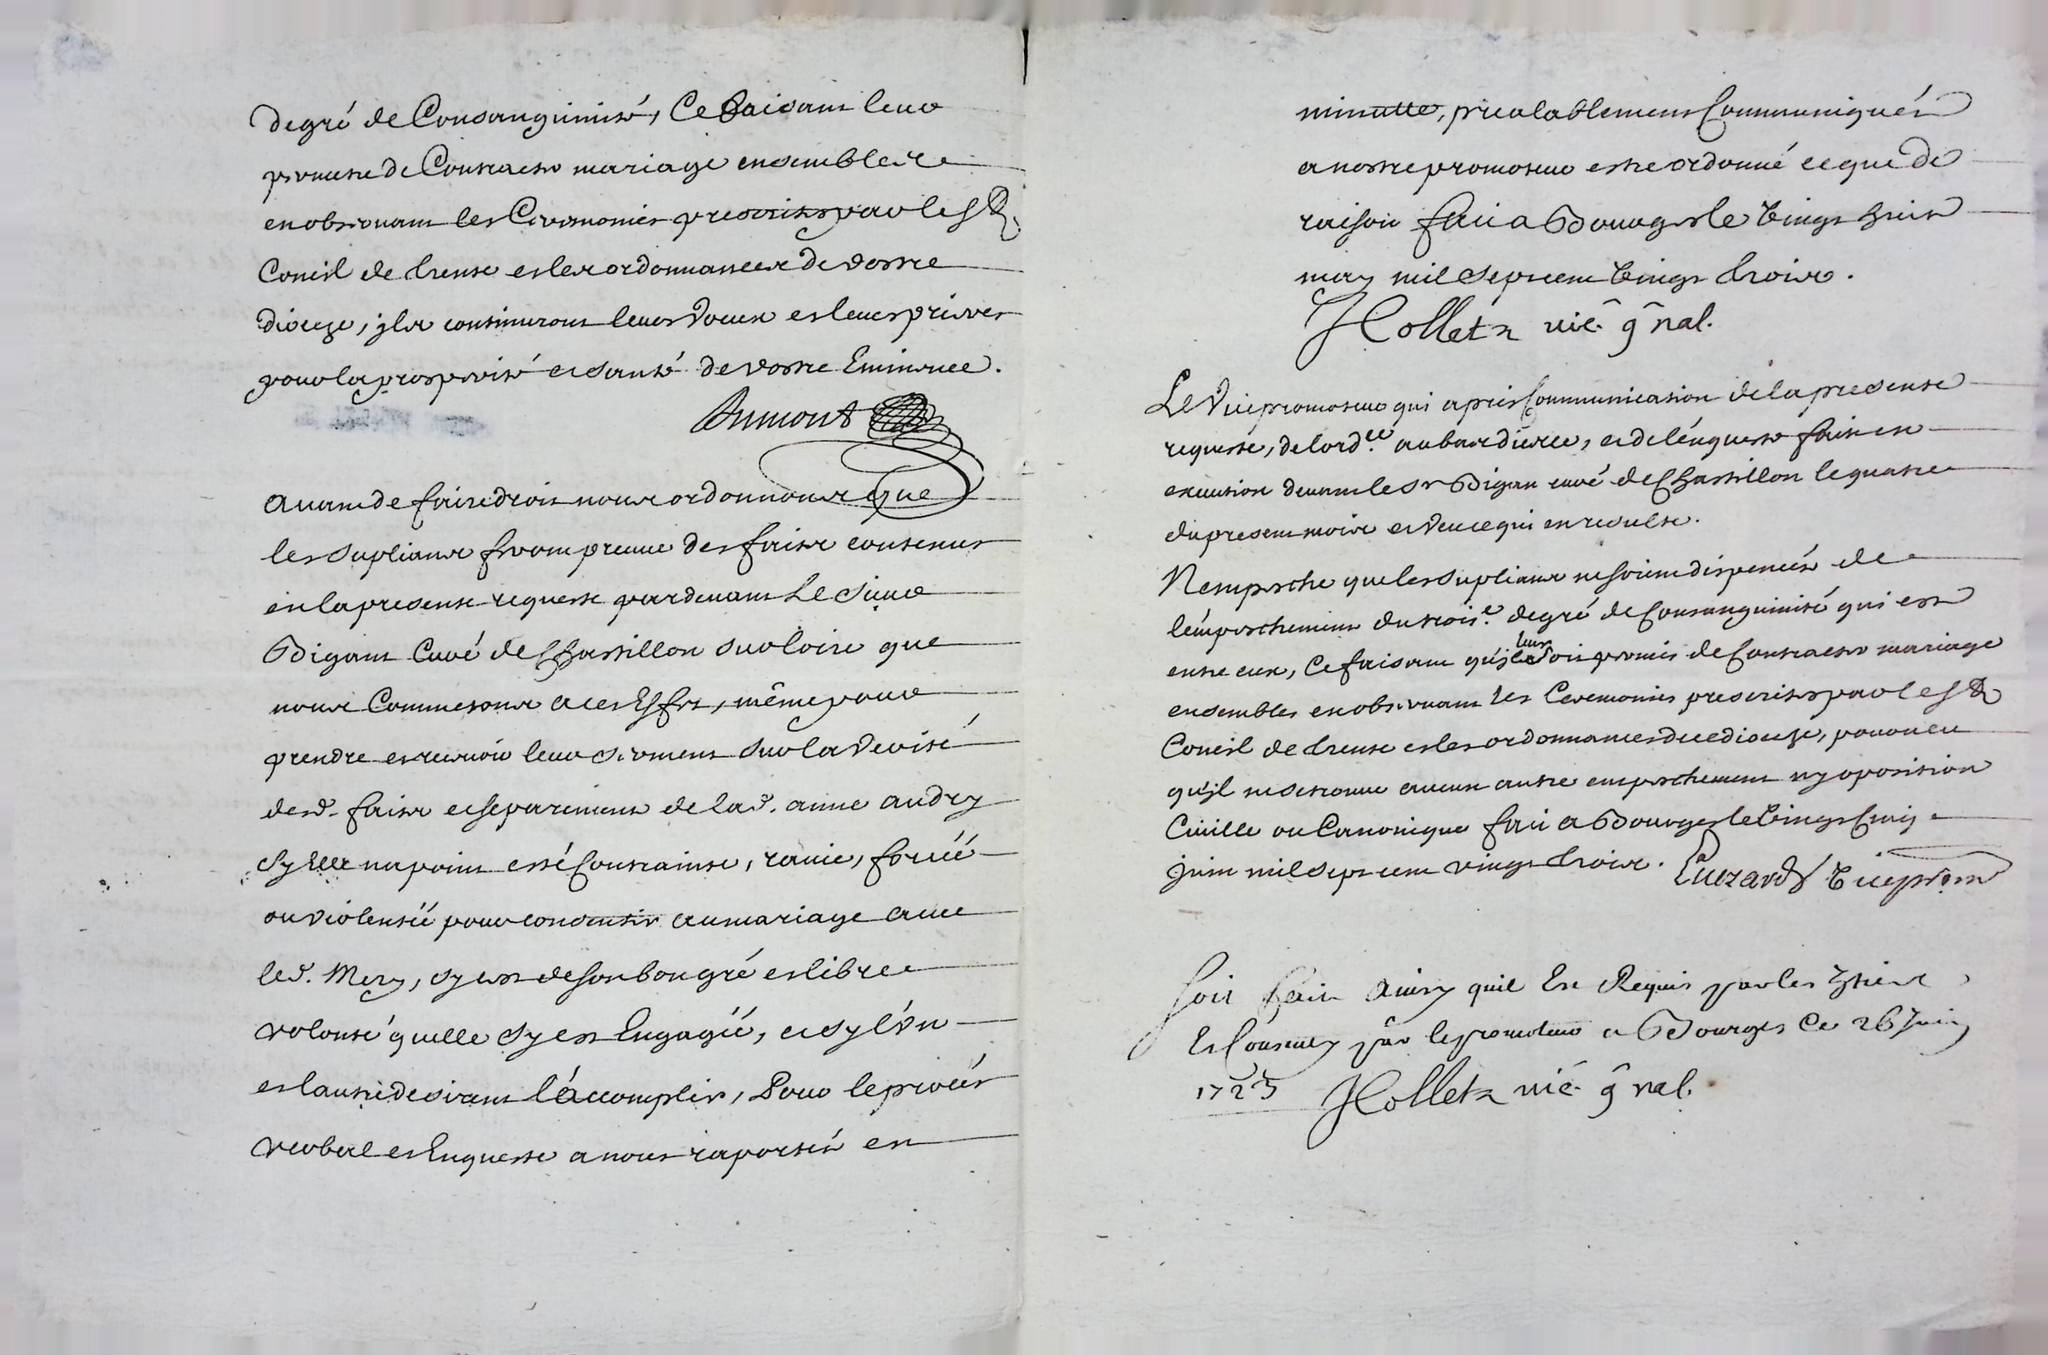 degré de Consanguinité, Ce faisant leur
permettre de Contracter mariage ensemble
en observant les Ceremonies prescrites par le St
Concil de trente et les ordonnances de vostre
dioceze, jls continuront leurs voeux et leurs prieres
pour la prosperité et santé de vostre Eminence.
Dumont
avant de faire droit nous ordonnons que
les supliants feront preuve des faits contenus
en la presente requeste pardevant Le Sieur
Bigant Curé de Chastillon sur loire que
nous Commetons a ces Effets, même pour
prendre et recevoir leur serment sur la verité
desd. faits et separement de lad. anne audry
sy Elle na point esté Contrainte, ravie, forcée
ou violentée pour consentir au mariage avec
led. Mery, sy cest de son bon gré et libre
volonté quelle sy est Engagée, et sy l'un
et lautre desirent l'accomplir, Pour le procés
verbal et Enqueste a nous raportés en
minutte, prealablement Communiqués
a nostre promoteur estre ordonné ce que de
raison fait a Bourges le vingt huit
may mil sept cent vingt trois.
Hollet vic. g nal.
Le Vice promoteur qui a pris Communication de la presente
requeste, de lord.ce au bas dicelle, et de l'enqueste faite en
execution devant le Sr Bigan curé de Chastillon le quatre
du present mois et veu ce qui en resulte.
N'empesche que les supliants ne soient dispencés de
l'empeschement du trois.e degré de Consanguinité qui est
entre eux, Ce faisant qu'il leur soit promis de Contracter mariage
ensembles en observant les Ceremonies prescrites par le St
Concil de trente et les ordonnances de ce dioceze, pourveu
qu'jl ne se trouve aucun autre empeschement ny oposition
Civille ou Canonique fait a Bourges le vingt Cinq
juin mil sept cent vingt trois. viceprom
Soit fait Ainsy quil Est Requis par les
Et Consenty par le promoteur a Bourges Ce 26 Juin
1723 Hollet vic. g nal.